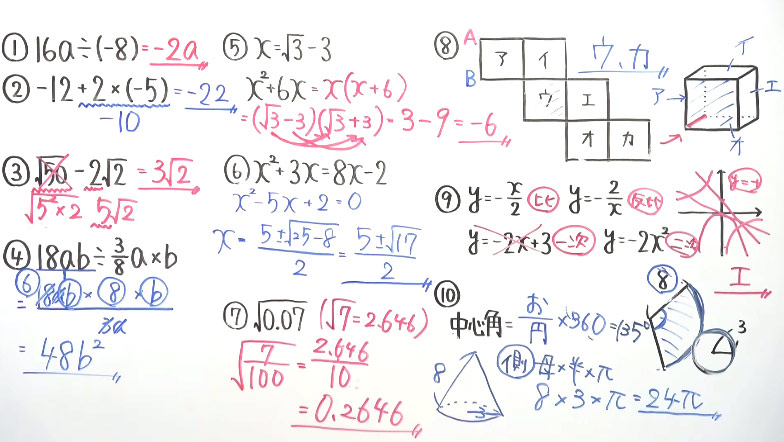 ① 16a÷(-8)=-2a
② -12+2×(-5)=-22
-10
③ √50-2√2=3√2
√5²×2 5√2
④ 18ab÷3/8a×b
⑥
= 18ab×8×b
3a
= 48b²
⑤ x=√3-3
x²+6x=x(x+6)
=(√3-3)(√3+3)=3-9=-6
⑥ x²+3x=8x-2
x²-5x+2=0
x=5±√25-8/2=5±√17/2
⑦ √0.07 (√7=2.646)
√7/100=2.646/10
=0.2646
⑧ A
B
ア イ
ウ エ
オ カ
ウ、カ
イ
ア エ
オ
⑨ y=-x/2 比 y=-2/x 反比
y=-2x+3 一次 y=-2x² 二次
エ
⑩
中心角=お/円×360=135°
8
3
側 母×半×π
8×3×π=24π
8
3